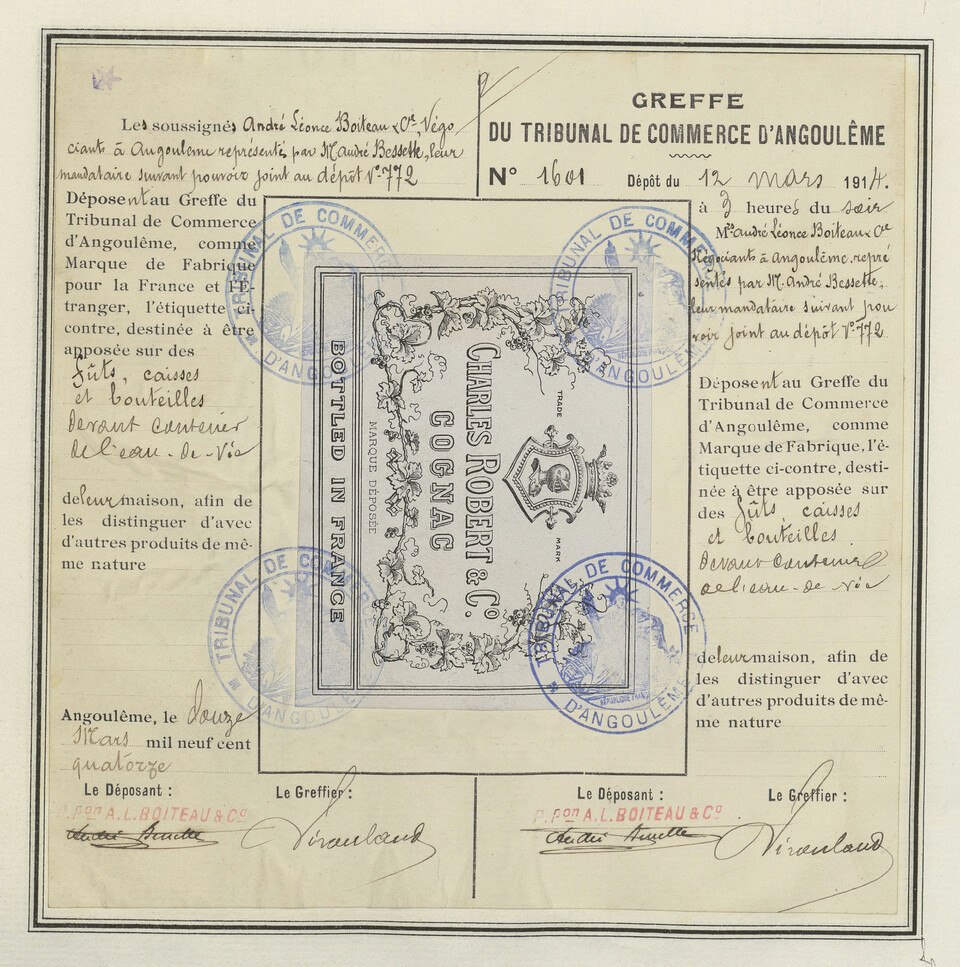 Les soussignés André Léonce Boiteau & Cie, Négo
ciant à Angoulême représenté par M. André Bessette, leur
mandataire suivant pouvoir joint au dépôt N° 772
Déposent au Greffe du
Tribunal de Commerce
d'Angoulême, comme
Marque de Fabrique
pour la France et l'É-
tranger, l'étiquette ci-
contre, destinée à être
apposée sur des
fûts, caisses
et bouteilles
devant contenir
de l'eau-de-vie
de leur maison, afin de
les distinguer d'avec
d'autres produits de mê-
me nature
Angoulême, le douze
Mars mil neuf cent
quatorze
Le Déposant :
Le Greffier :
P. Pon A. L. BOITEAU & Co
André Bessette
GREFFE
DU TRIBUNAL DE COMMERCE D'ANGOULÊME
N° 1601 Dépôt du 12 mars 1914.
à 3 heures du soir
Mrs André Léonce Boiteau & Cie
Négociants à Angoulême, repré
sentés par M. André Bessette,
leur mandataire suivant pou
voir joint au dépôt N° 772
Déposent au Greffe du
Tribunal de Commerce
d'Angoulême, comme
Marque de Fabrique, l'é-
tiquette ci-contre, desti-
née à être apposée sur
des fûts, caisses
et bouteilles.
devant contenir
de l'eau-de-vie
de leur maison, afin de
les distinguer d'avec
d'autres produits de mê-
me nature
Le Déposant :
Le Greffier :
P. Pon A. L. BOITEAU & Co
André Bessette
TRADE MARK
CHARLES ROBERT & Co.
COGNAC
MARQUE DÉPOSÉE
BOTTLED IN FRANCE
TRIBUNAL DE COMMERCE D'ANGOULÊME
TRIBUNAL DE COMMERCE D'ANGOULÊME
TRIBUNAL DE COMMERCE D'ANGOULÊME
TRIBUNAL DE COMMERCE D'ANGOULÊME